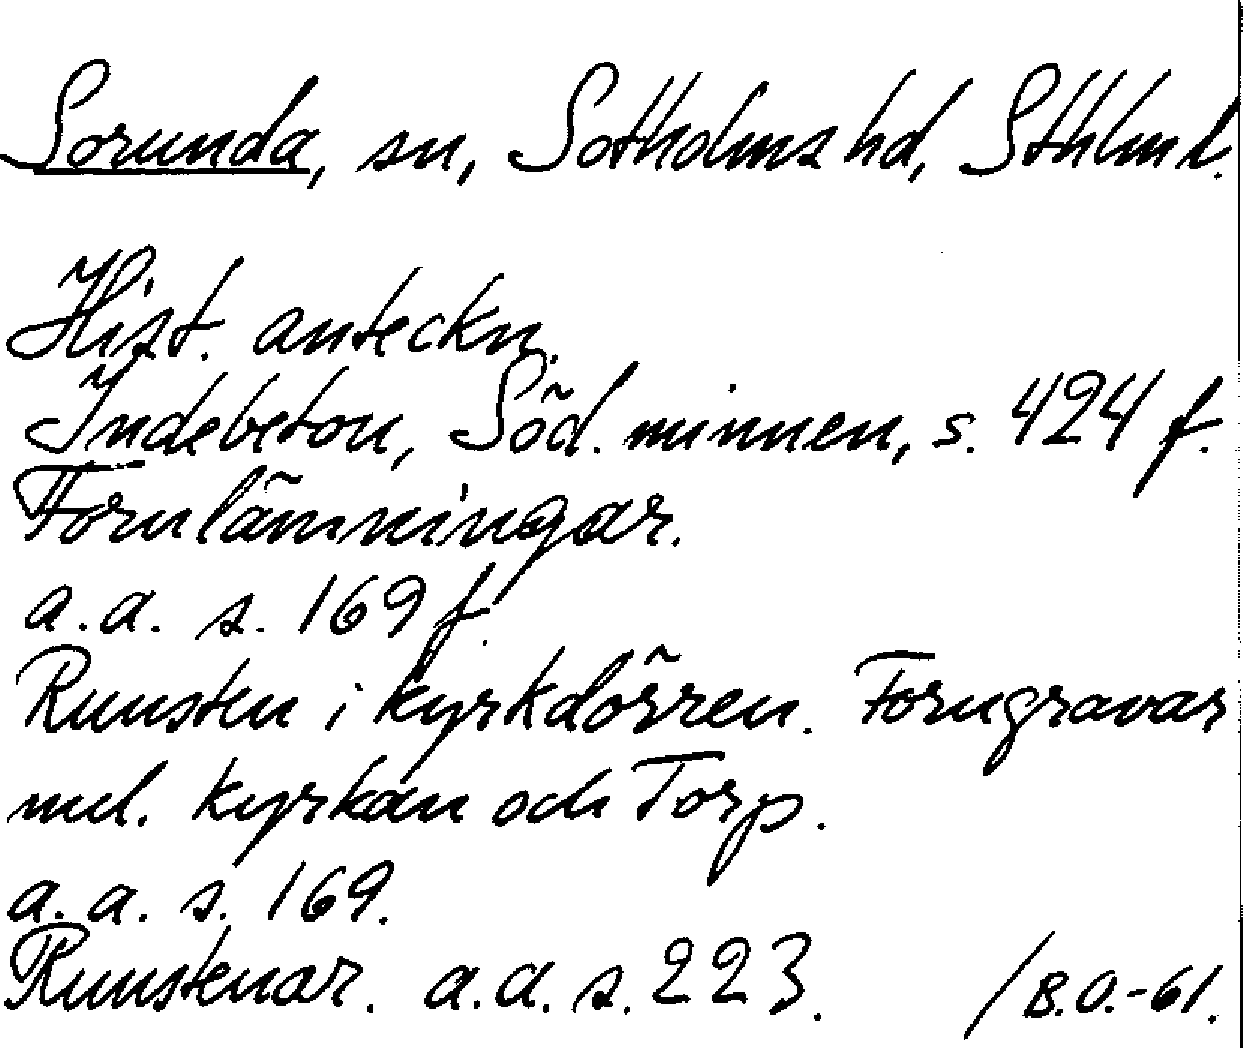 Sorunda, sn, Sotholms hd, Sthlm l.
Hist. anteckn.
Indebetou, Söd. minnen, s. 424 f.
Fornlämningar.
a.a. s. 169 f.
Runsten i kyrkdörren. Forngravar
mel. kyrkan och Torp.
a.a. s. 169.
Runstenar. a.a. s. 223. /B.O.-61.